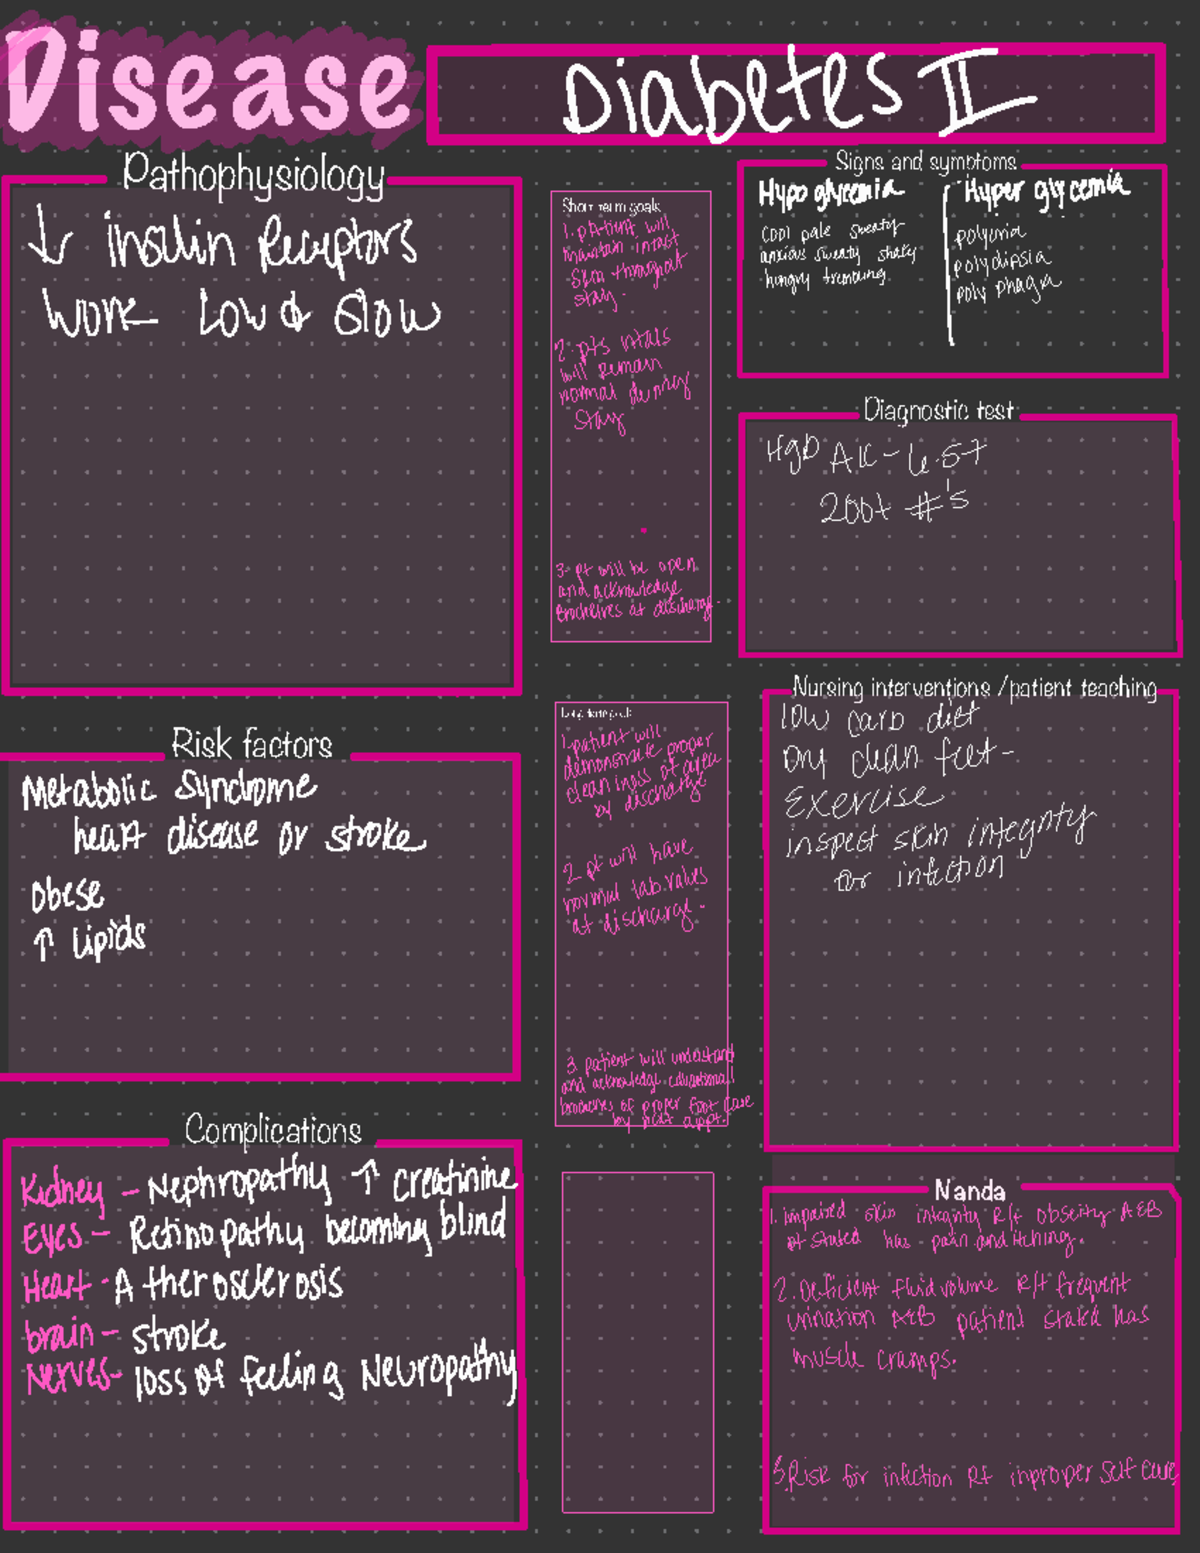 Disease
Diabetes II
Pathophysiology
↓ insulin Receptors
Work Low & Slow
Short term goals
1. patient will
maintain intact
skin throughout
stay.
2. pts vitals
will remain
normal during
stay
3- pt will be open
and acknowledge
Brochures at discharge.
Signs and symptoms
Hypoglycemia
Cool pale sweaty
anxious sweaty shaky
hungry trembling.
Hyper glycemia
polyuria
polydipsia
poly phagia
Diagnostic test
HgB A1C - 6.5-7
200+ #'s
Risk factors
Metabolic Syndrome
heart disease or stroke
Obese
↑ lipids
Long term goals
1. patient will
demonstrate proper
cleanliness of area
by discharge
2. pt will have
normal lab values
at discharge.
3. patient will understand
and acknowledge educational
brochures of proper foot care
by next appt.
Nursing interventions /patient teaching
low carb diet
Dry clean feet-
Exercise
inspect skin integrity
for infection
Complications
Kidney - Nephropathy ↑ creatinine
Eyes - Retinopathy becoming blind
Heart - Atherosclerosis
brain - stroke
Nerves- loss of feeling Neuropathy
Nanda
1. Impaired skin integrity R/t obseity AEB
pt stated has pain and itching.
2. Deficient fluid volume R/t frequent
urination AEB patient stated has
muscle cramps.
3. Risk for infection Rt inproper self care